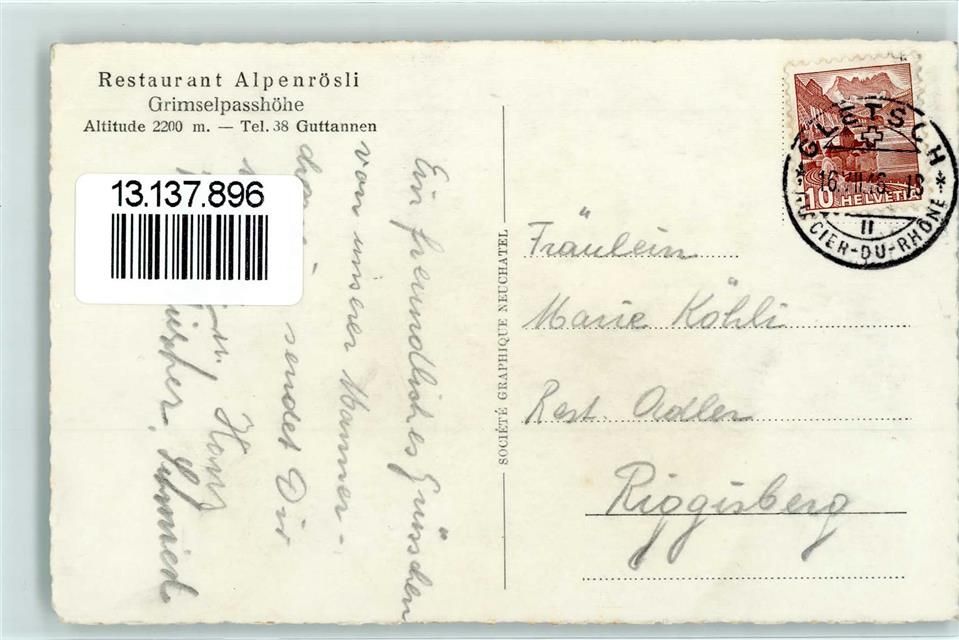 Restaurant Alpenrösli
Grimselpasshöhe
Altitude 2200 m. — Tel. 38 Guttannen
13.137.896
Ein freundliches Grüsschen
von unserer Männer-
sendet Dir
Hans
Schmied
SOCIÉTÉ GRAPHIQUE NEUCHATEL
GLETSCH
16. VII. 46.
GLACIER-DU-RHÔNE
II
10 HELVETIA
Fräulein
Marie Köhli
Rest. Adler
Riggisberg